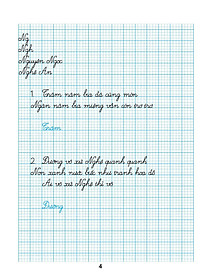 Ng
Ngh
Nguyên Ngọc
Nghệ An
1. Trăm năm bia đá cũng mòn
Ngàn năm bia miệng vẫn còn trơ trơ
Trăm
2. Đường vô xứ Nghệ quanh quanh
Non xanh nước biếc như tranh họa đồ
Ai vô xứ Nghệ thì vô
Đường
4